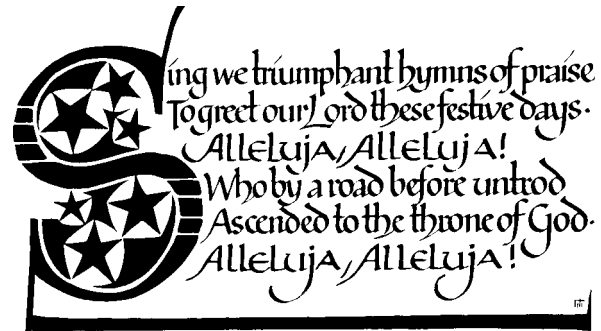 Sing we triumphant hymns of praise
To greet our Lord these festive days.
Alleluja, Alleluja!
Who by a road before untrod
Ascended to the throne of God.
Alleluja, Alleluja!